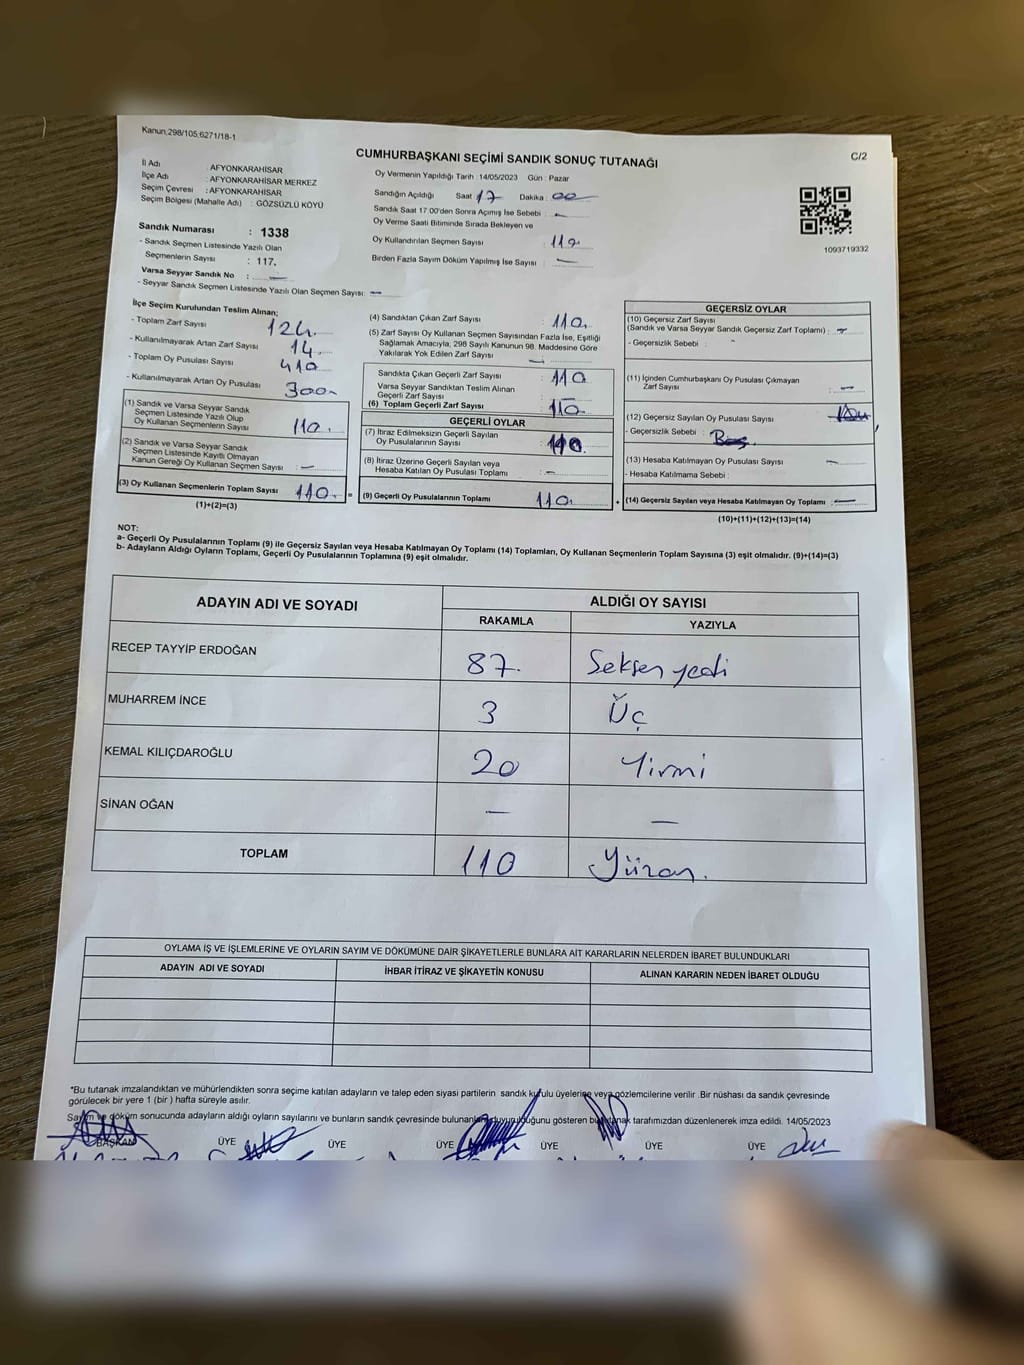 Kanun,298/105;6271/18-1
CUMHURBAŞKANI SEÇİMİ SANDIK SONUÇ TUTANAĞI
C/2
İl Adı : AFYONKARAHİSAR
İlçe Adı : AFYONKARAHİSAR MERKEZ
Seçim Çevresi : AFYONKARAHİSAR
Seçim Bölgesi (Mahalle Adı) : GÖZSÜZLÜ KÖYÜ
Sandık Numarası : 1338
- Sandık Seçmen Listesinde Yazılı Olan
Seçmenlerin Sayısı : 117,
Varsa Seyyar Sandık No : —
- Seyyar Sandık Seçmen Listesinde Yazılı Olan Seçmen Sayısı: —
Oy Vermenin Yapıldığı Tarih : 14/05/2023 Gün : Pazar
Sandığın Açıldığı Saat 17 Dakika : 00
Sandık Saat 17:00'den Sonra Açımış İse Sebebi : —
Oy Verme Saati Bitiminde Sırada Bekleyen ve
Oy Kullandırılan Seçmen Sayısı :
Birden Fazla Sayım Döküm Yapılmış İse Sayısı : —
1093719332
İlçe Seçim Kurulundan Teslim Alınan;
- Toplam Zarf Sayısı 124.
- Kullanılmayarak Artan Zarf Sayısı 14
- Toplam Oy Pusulası Sayısı 410
- Kullanılmayarak Artan Oy Pusulası 300
(1) Sandık ve Varsa Seyyar Sandık
Seçmen Listesinde Yazılı Olup
Oy Kullanan Seçmenlerin Sayısı 110.
(2) Sandık ve Varsa Seyyar Sandık
Seçmen Listesinde Kayıtlı Olmayan
Kanun Gereği Oy Kullanan Seçmen Sayısı : —
(3) Oy Kullanan Seçmenlerin Toplam Sayısı 110.
(1)+(2)=(3)
(4) Sandıktan Çıkan Zarf Sayısı : 110.
(5) Zarf Sayısı Oy Kullanan Seçmen Sayısından Fazla İse, Eşitliği
Sağlamak Amacıyla, 298 Sayılı Kanunun 98. Maddesine Göre
Yakılarak Yok Edilen Zarf Sayısı : —
Sandıkta Çıkan Geçerli Zarf Sayısı : 110
Varsa Seyyar Sandıktan Teslim Alınan
Geçerli Zarf Sayısı : —
(6) Toplam Geçerli Zarf Sayısı : 110.
GEÇERLİ OYLAR
(7) İtiraz Edilmeksizin Geçerli Sayılan
Oy Pusulalarının Sayısı : 110.
(8) İtiraz Üzerine Geçerli Sayılan veya
Hesaba Katılan Oy Pusulası Toplamı : —
= (9) Geçerli Oy Pusulalarının Toplamı : 110.
GEÇERSİZ OYLAR
(10) Geçersiz Zarf Sayısı
(Sandık ve Varsa Seyyar Sandık Geçersiz Zarf Toplamı) : —
- Geçersizlik Sebebi : -
(11) İçinden Cumhurbaşkanı Oy Pusulası Çıkmayan
Zarf Sayısı : —
(12) Geçersiz Sayılan Oy Pusulası Sayısı :
- Geçersizlik Sebebi :
(13) Hesaba Katılmayan Oy Pusulası Sayısı : —
- Hesaba Katılmama Sebebi :
+ (14) Geçersiz Sayılan veya Hesaba Katılmayan Oy Toplamı : —
(10)+(11)+(12)+(13)=(14)
NOT:
a- Geçerli Oy Pusulalarının Toplamı (9) ile Geçersiz Sayılan veya Hesaba Katılmayan Oy Toplamı (14) Toplamları, Oy Kullanan Seçmenlerin Toplam Sayısına (3) eşit olmalıdır. (9)+(14)=(3)
b- Adayların Aldığı Oyların Toplamı, Geçerli Oy Pusulalarının Toplamına (9) eşit olmalıdır.
ADAYIN ADI VE SOYADI
ALDIĞI OY SAYISI
RAKAMLA YAZIYLA
RECEP TAYYİP ERDOĞAN 87. Seksen yedi
MUHARREM İNCE 3 Üç
KEMAL KILIÇDAROĞLU 20 Yirmi
SİNAN OĞAN — —
TOPLAM 110 Yüzon.
OYLAMA İŞ VE İŞLEMLERİNE VE OYLARIN SAYIM VE DÖKÜMÜNE DAİR ŞİKAYETLERLE BUNLARA AİT KARARLARIN NELERDEN İBARET BULUNDUKLARI
ADAYIN ADI VE SOYADI İHBAR İTİRAZ VE ŞİKAYETİN KONUSU ALINAN KARARIN NEDEN İBARET OLDUĞU
*Bu tutanak imzalandıktan ve mühürlendikten sonra seçime katılan adayların ve talep eden siyasi partilerin sandık kurulu üyelerine veya gözlemcilerine verilir. Bir nüshası da sandık çevresinde
görülecek bir yere 1 (bir ) hafta süreyle asılır.
Sayım ve döküm sonucunda adayların aldığı oyların sayılarını ve bunların sandık çevresinde bulunanlara duyurulduğunu gösteren bu tutanak tarafımızdan düzenlenerek imza edildi. 14/05/2023
BAŞKAN ÜYE ÜYE ÜYE ÜYE ÜYE ÜYE